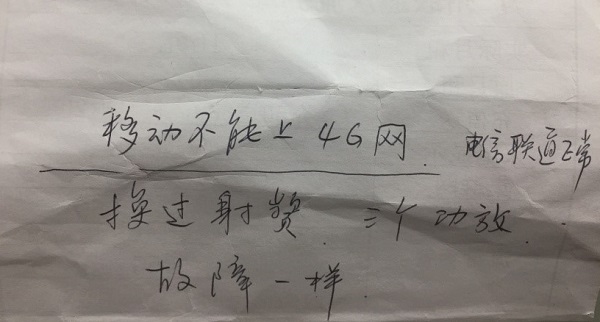 移动不能上4G网. 电信联通正常
换过射频. 三个功放.
故障一样.